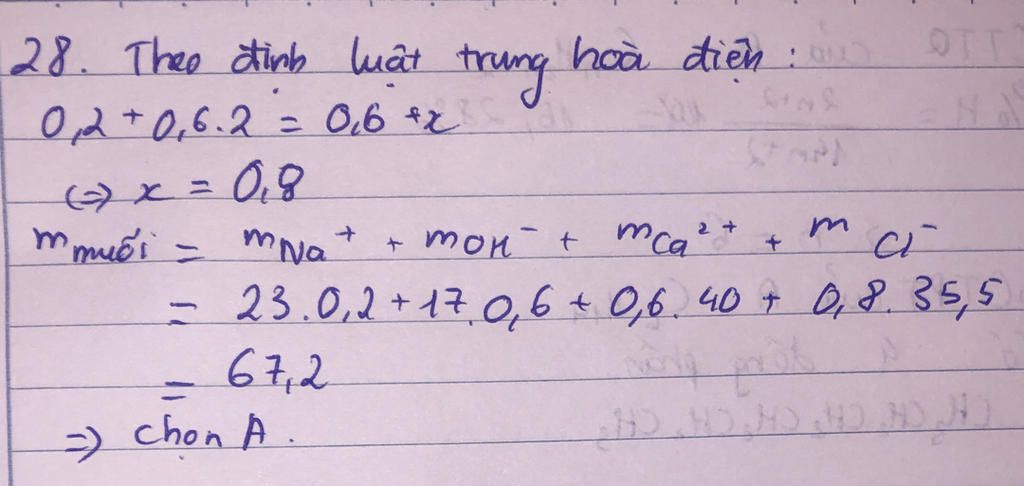 28. Theo định luật trung hoà điện :
0,2 + 0,6.2 = 0,6 + x
(=) x = 0,8
m muối = m Na⁺ + m OH⁻ + m Ca²⁺ + m Cl⁻
= 23.0,2 + 17.0,6 + 0,6.40 + 0,8.35,5
= 67,2
=> chọn A.